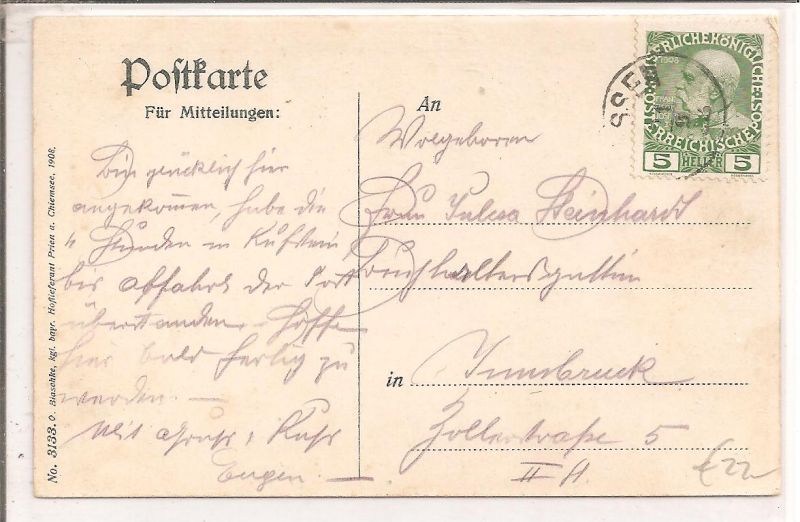 Postkarte
Für Mitteilungen:
Bin glücklich hier
angekommen, habe die
4 Stunden in Kufstein
bis Abfahrt der Post
überstanden. Hoffe
hier bald fertig zu
werden. —
Mit Gruß, Kuß
Eugen
An
Wolgeboren
Frau Steinhardt
Buchhaltersgattin
in Innsbruck
Zollerstraße 5
II H.
€22
ÖSTERREICHISCHE
1908
5 HELLER 5
No. 3133. O. Blaschke, kgl. bayr. Hoflieferant Prien a. Chiemsee, 1908.